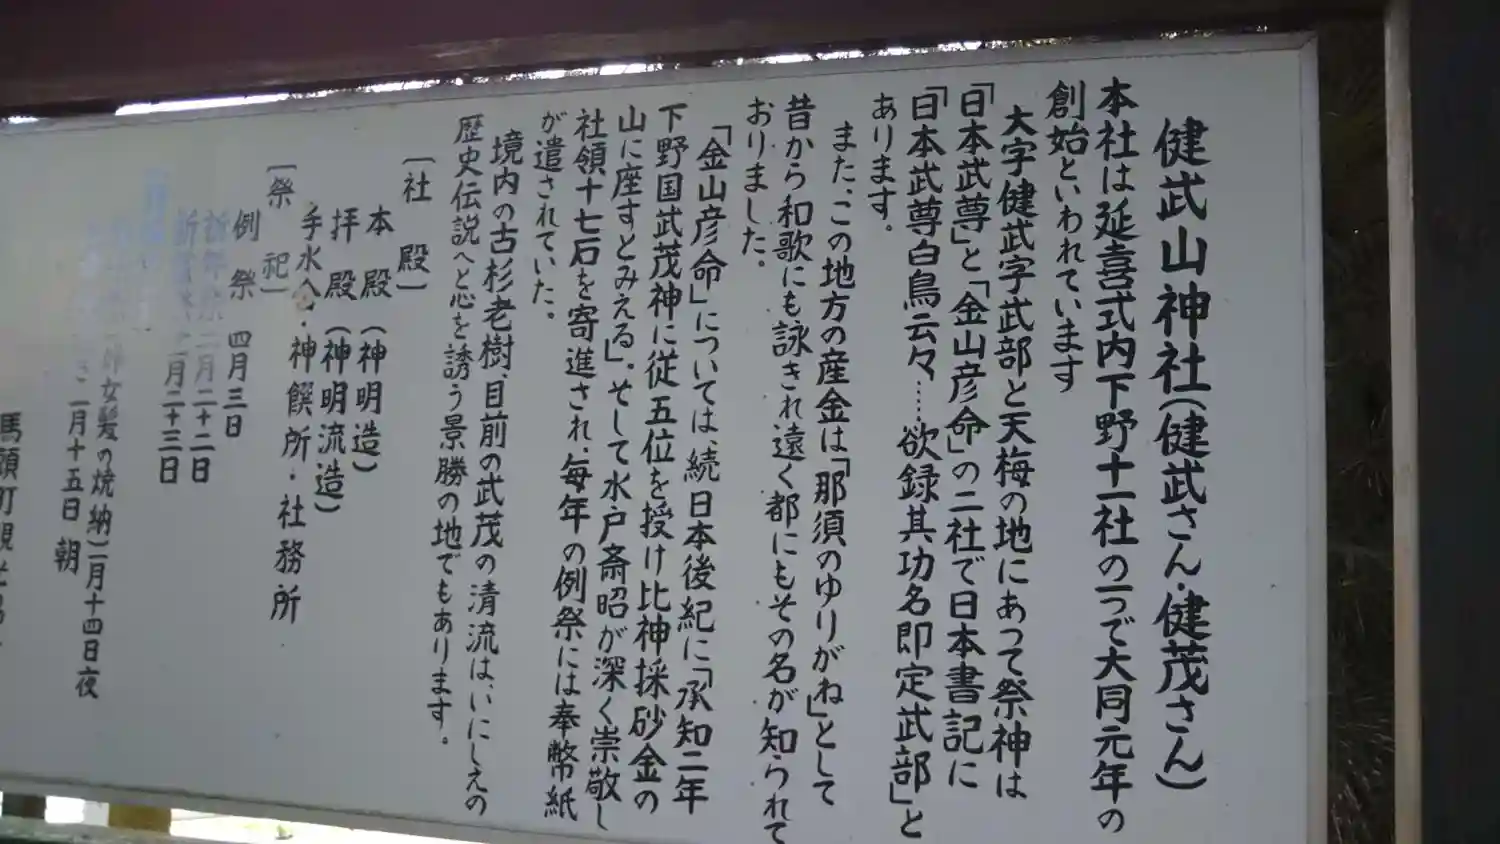 健武山神社(健武さん・健茂さん)
本社は延喜式内下野十一社の一つで大同元年の
創始といわれています
大字健武字武部と天梅の地にあって祭神は
「日本武尊」と「金山彦命」の二社で日本書記に
「日本武尊白鳥云々……欲録其功名即定武部」と
あります。
また、この地方の産金は「那須のゆりがね」として
昔から和歌にも詠され遠く都にもその名が知られて
おりました。
「金山彦命」については、続日本後紀に「承知二年
下野国武茂神に従五位を授け比神採砂金の
山に座すとみえる」。そして水戸斎昭が深く崇敬し
社領十七石を寄進され、毎年の例祭には奉幣紙
が遣されていた。
境内の古杉老樹、目前の武茂の清流は、いにしえの
歴史伝説へと心を誘う景勝の地でもあります。
〔社殿〕
本殿(神明造)
拝殿(神明流造)
手水舎・神饌所・社務所
〔祭祀〕
例祭 四月三日
祈年祭 二月二十二日
月二十三日
女髪の焼納)二月十四日夜
二月十五日 朝
馬頭町観光